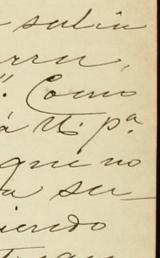 salia
rru,
". Como
á U. pa.
que no
a su-
iendo